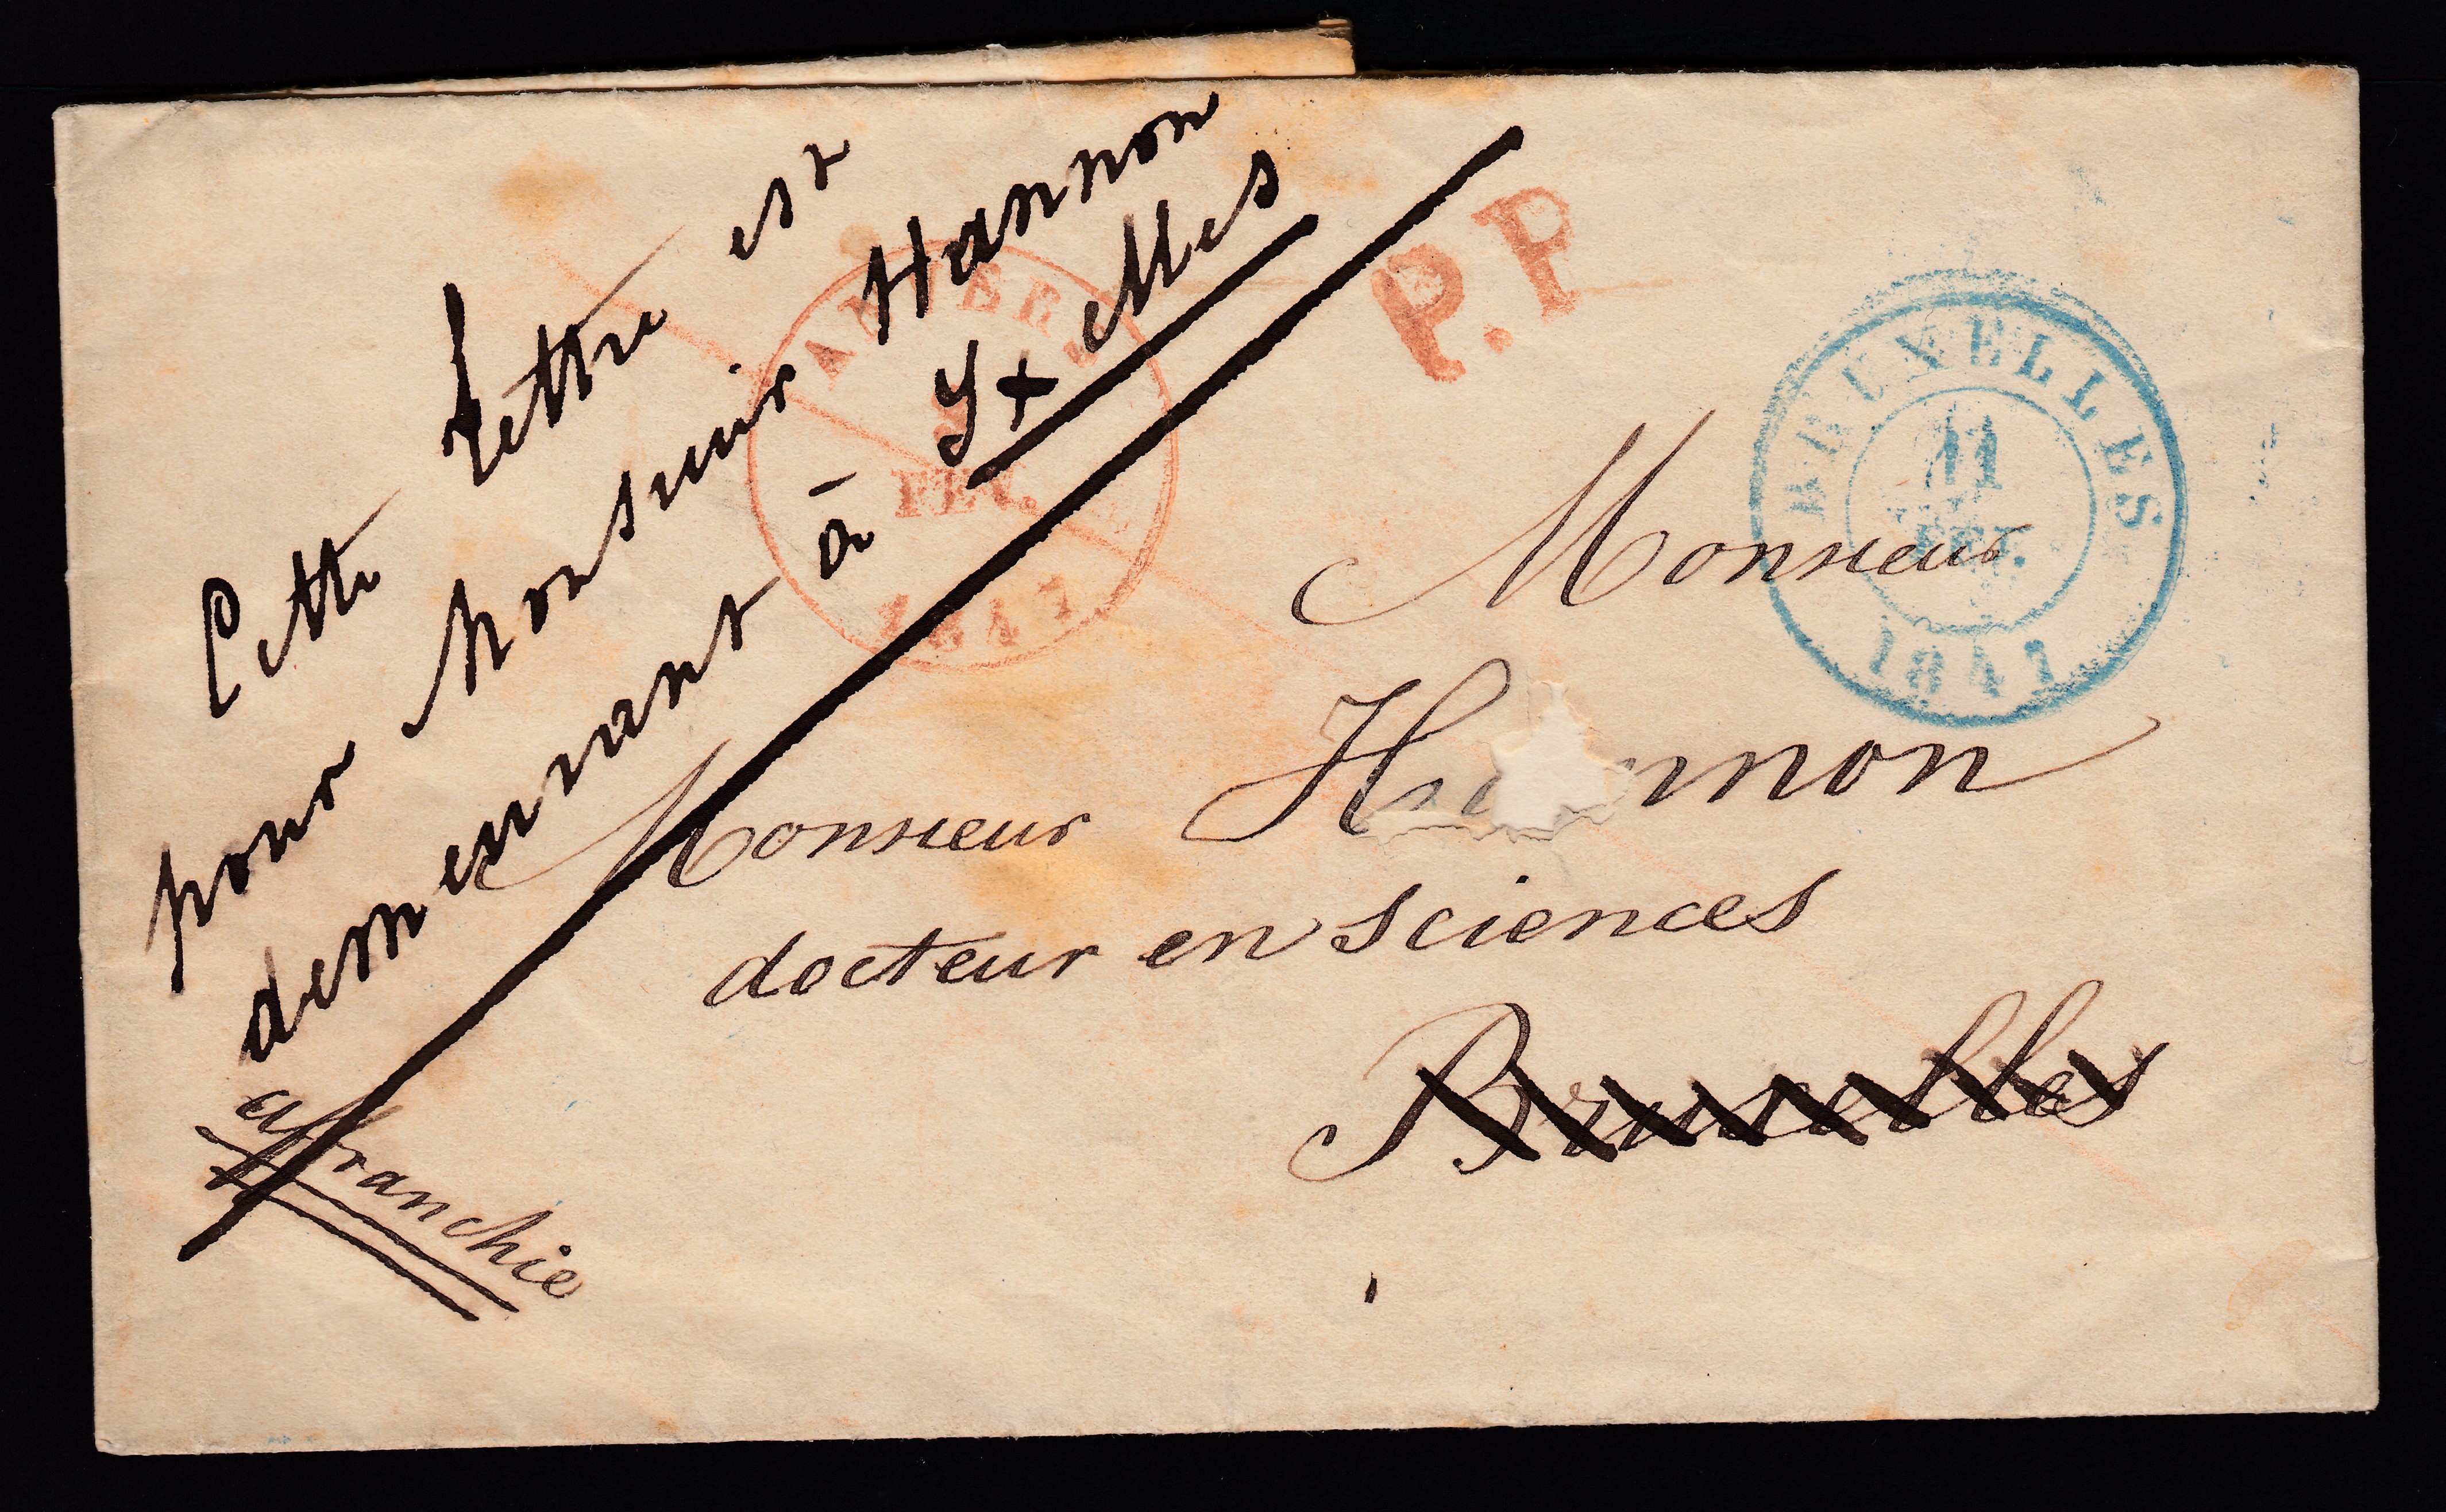 Cette Lettre est
pour Monsieur Hannon
demeurant à Yxelles
P.P
ANVERS
FEV.
1847
BRUXELLES
11
FEV.
1847
Monsieur
Monsieur Hannon
docteur en sciences
Bruxelles
affranchie